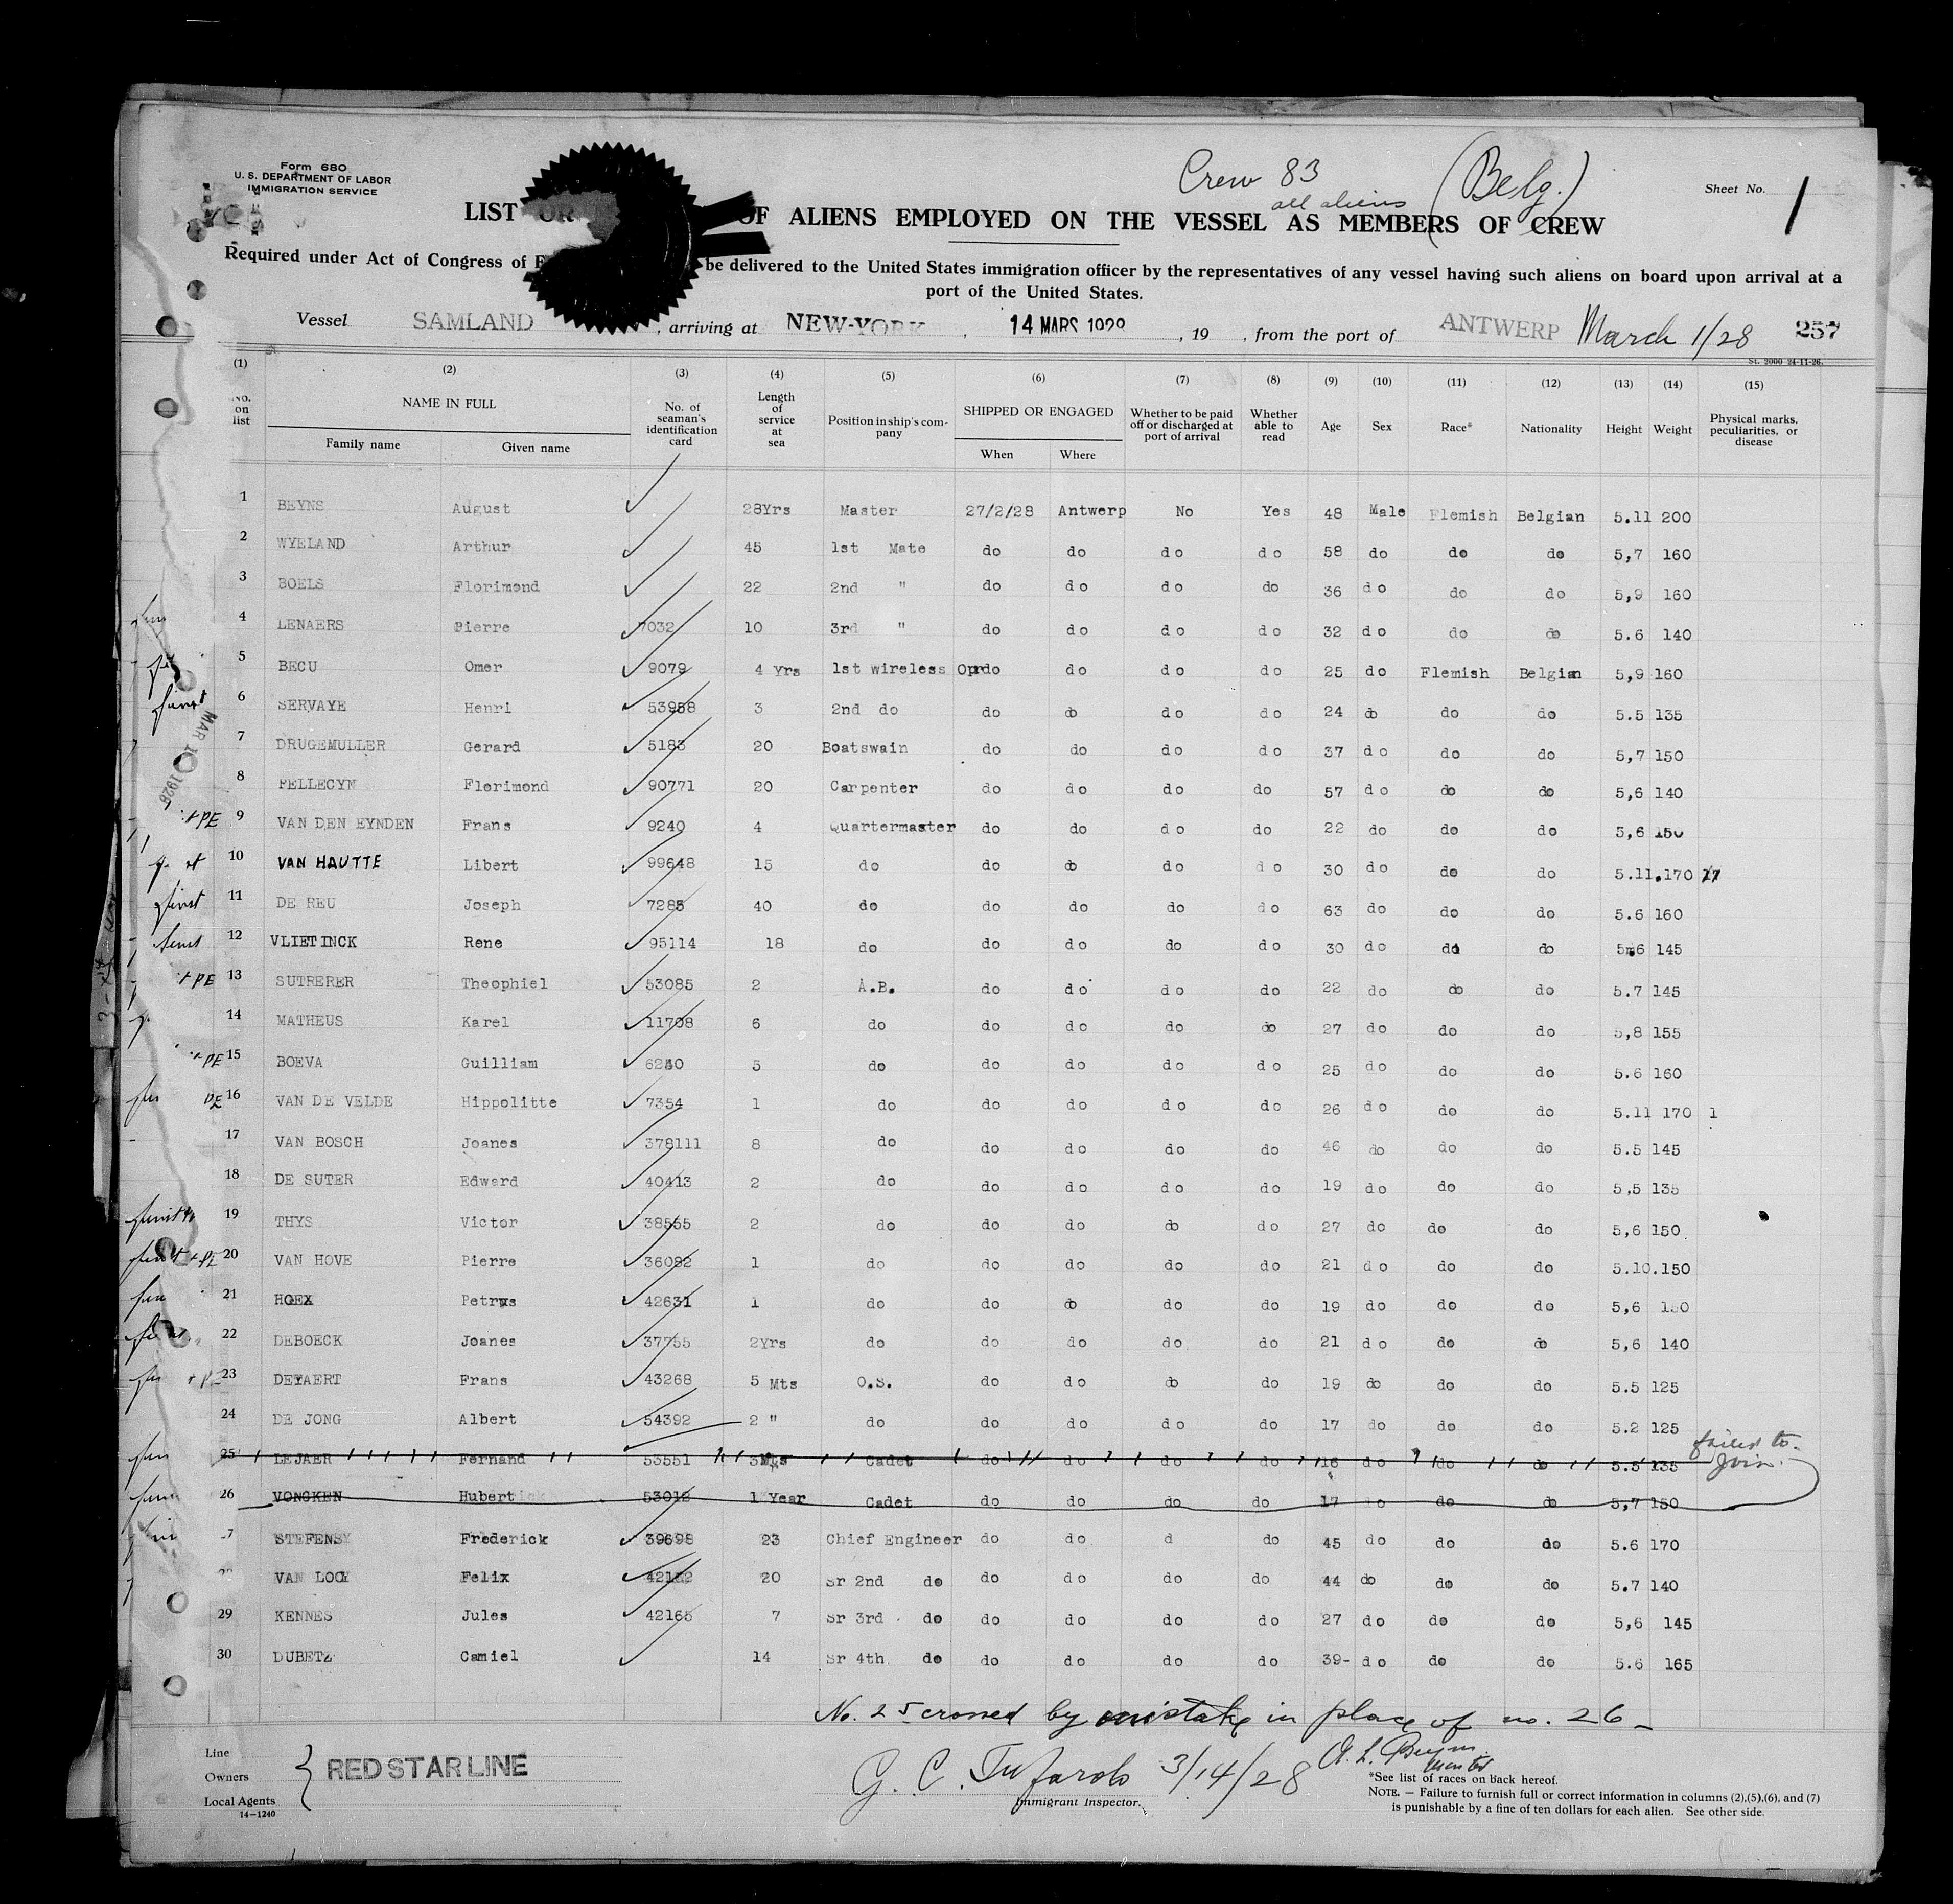 Form 680
U. S. DEPARTMENT OF LABOR
IMMIGRATION SERVICE
Crew 83 (Belg.)
all aliens
Sheet No. 1
LIST OR OF ALIENS EMPLOYED ON THE VESSEL AS MEMBERS OF CREW
Required under Act of Congress of be delivered to the United States immigration officer by the representatives of any vessel having such aliens on board upon arrival at a
port of the United States.
Vessel SAMLAND, arriving at NEW-YORK, 14 MARS 1928, 19 , from the port of ANTWERP March 1/28 257
St. 2000 24-11-26.
(1) (2) (3) (4) (5) (6) (7) (8) (9) (10) (11) (12) (13) (14) (15)
No. on list NAME IN FULL Family name Given name No. of seaman's identification card Length of service at sea Position in ship's company SHIPPED OR ENGAGED When Where Whether to be paid off or discharged at port of arrival Whether able to read Age Sex Race* Nationality Height Weight Physical marks, peculiarities, or disease
1 BEYNS August 28Yrs Master 27/2/28 Antwerp No Yes 48 Male Flemish Belgian 5.11 200
2 WYELAND Arthur 45 1st Mate do do do do 58 do do do 5,7 160
3 BOELS Florimond 22 2nd " do do do do 36 do do do 5,9 160
4 LENAERS Pierre 7032 10 3rd " do do do do 32 do do do 5.6 140
5 BECU Omer 9079 4 Yrs 1st wireless Opr do do do do 25 do Flemish Belgian 5,9 160
6 SERVAYE Henri 53958 3 2nd do do do do do 24 do do do 5.5 135
7 DRUGEMULLER Gerard 5183 20 Boatswain do do do do 37 do do do 5,7 150
8 PELLECYN Florimond 90771 20 Carpenter do do do do 57 do do do 5,6 140
9 VAN DEN EYNDEN Frans 9240 4 Quartermaster do do do do 22 do do do 5,6 150
10 VAN HAUTTE Libert 99648 15 do do do do do 30 do do do 5.11.170 17
11 DE REU Joseph 7285 40 do do do do do 63 do do do 5.6 160
12 VLIETINCK Rene 95114 18 do do do do do 30 do do do 5.6 145
13 SUTRERER Theophiel 53085 2 A.B. do do do do 22 do do do 5.7 145
14 MATHEUS Karel 11708 6 do do do do do 27 do do do 5,8 155
15 BOEVA Guilliam 6240 5 do do do do do 25 do do do 5.6 160
16 VAN DE VELDE Hippolitte 7354 1 do do do do do 26 do do do 5.11 170 1
17 VAN BOSCH Joanes 378111 8 do do do do do 46 do do do 5.5 145
18 DE SUTER Edward 40413 2 do do do do do 19 do do do 5,5 135
19 THYS Victor 38555 2 do do do do do 27 do do do 5,6 150
20 VAN HOVE Pierre 36082 1 do do do do do 21 do do do 5.10.150
21 HOEX Petrus 42631 1 do do do do do 19 do do do 5,6 150
22 DEBOECK Joanes 37755 2Yrs do do do do do 21 do do do 5,6 140
23 DEYAERT Frans 43268 5 Mts O.S. do do do do 19 do do do 5.5 125
24 DE JONG Albert 54392 2 " do do do do do 17 do do do 5.2 125
25 LEJAER Fernand 53551 3Mts Cadet do do do do 16 do do do 5.5 135 failed to join.
26 VONCKEN Hubert 53012 1 Year Cadet do do do do 17 do do do 5,7 150
27 STEFENS Frederick 39698 23 Chief Engineer do do d do 45 do do do 5.6 170
VAN LOOY Felix 42122 20 Sr 2nd do do do do do 44 do do do 5.7 140
29 KENNES Jules 42165 7 Sr 3rd do do do do do 27 do do do 5,6 145
30 DUBETZ Camiel 14 Sr 4th do do do do do 39- do do do 5.6 165
No. 25 crossed by mistake in place of no. 26
Line
Owners
Local Agents
14-1240
RED STAR LINE
G. C. Tufarolo 3/14/28
Immigrant Inspector.
Master
*See list of races on back hereof.
NOTE. — Failure to furnish full or correct information in columns (2),(5),(6), and (7)
is punishable by a fine of ten dollars for each alien. See other side.